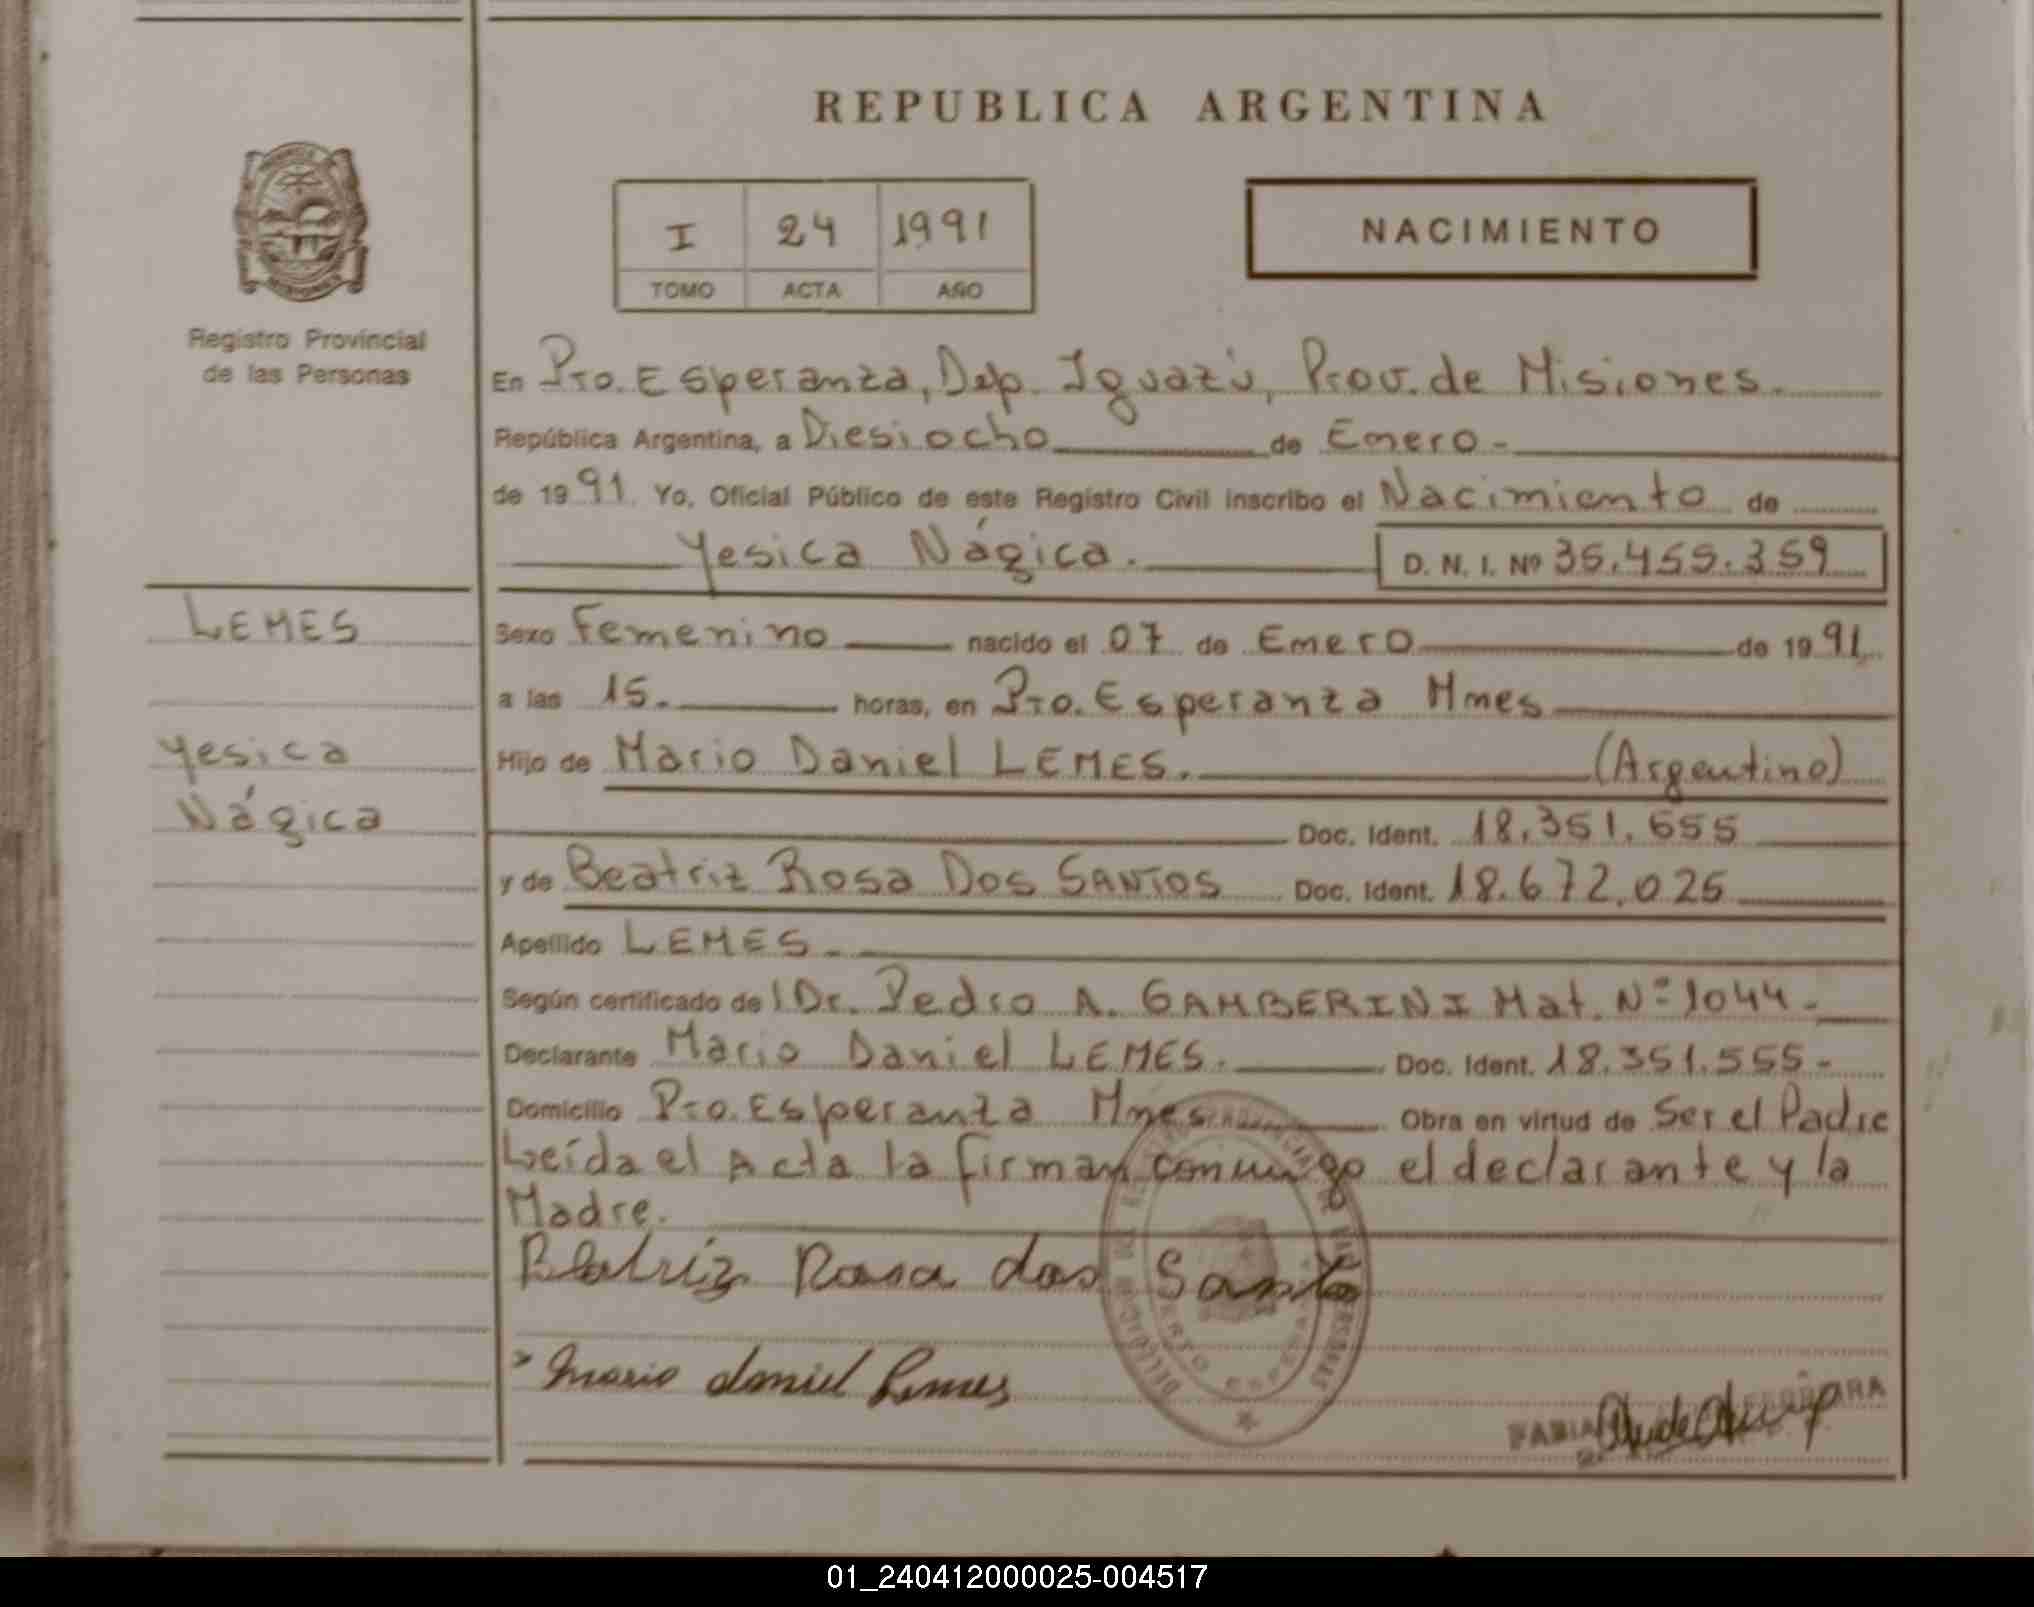 REPUBLICA ARGENTINA
I 24 1991
TOMO ACTA AÑO
NACIMIENTO
Registro Provincial
de las Personas
En Pto. Esperanza, Dep. Iguazú, Prov. de Misiones.
República Argentina, a Diesiocho de Enero -
de 1991. Yo, Oficial Público de este Registro Civil inscribo el Nacimiento de
Yesica Nágica.
D. N. I. Nº 35.455.359
LEMES
Yesica
Nágica
Sexo Femenino nacido el 07 de Enero de 1991
a las 15. horas, en Pto. Esperanza Mnes
Hijo de Mario Daniel LEMES. (Argentino)
Doc. Ident. 18.351.655
y de Beatriz Rosa DOS SANTOS Doc. Ident. 18.672.025
Apellido LEMES -
Según certificado de l Dr. Pedro A. GAMBERINI Mat. Nº 1044 -
Declarante Mario Daniel LEMES. Doc. Ident. 18.351.555 -
Domicilio Pto. Esperanza Mnes Obra en virtud de Ser el Padre
Leída el Acta la firman conmigo el declarante y la
Madre.
Beatriz Rosa dos Santos
Mario daniel Lemes
01_240412000025-004517